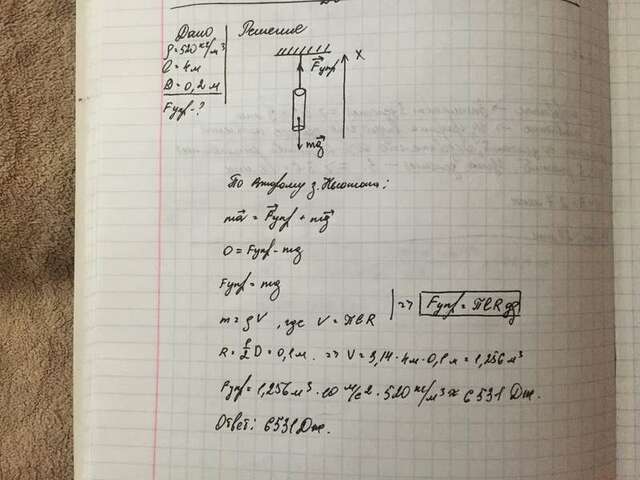 Дано
Решение
ρ = 520 кг/м³
l = 4 м
D = 0,2 м
Fупр - ?
Fупр
X
mg
По второму з. Ньютона:
ma = Fупр + mg
0 = Fупр - mg
Fупр = mg
m = ρV, где V = πlR
=> Fупр = πlRρg
R = 1/2 D = 0,1 м. => V = 3,14 · 4 м · 0,1 м = 1,256 м³
Fупр = 1,256 м³ · 10 м/с² · 520 кг/м³ ≈ 6531 Дж.
Ответ: 6531 Дж.